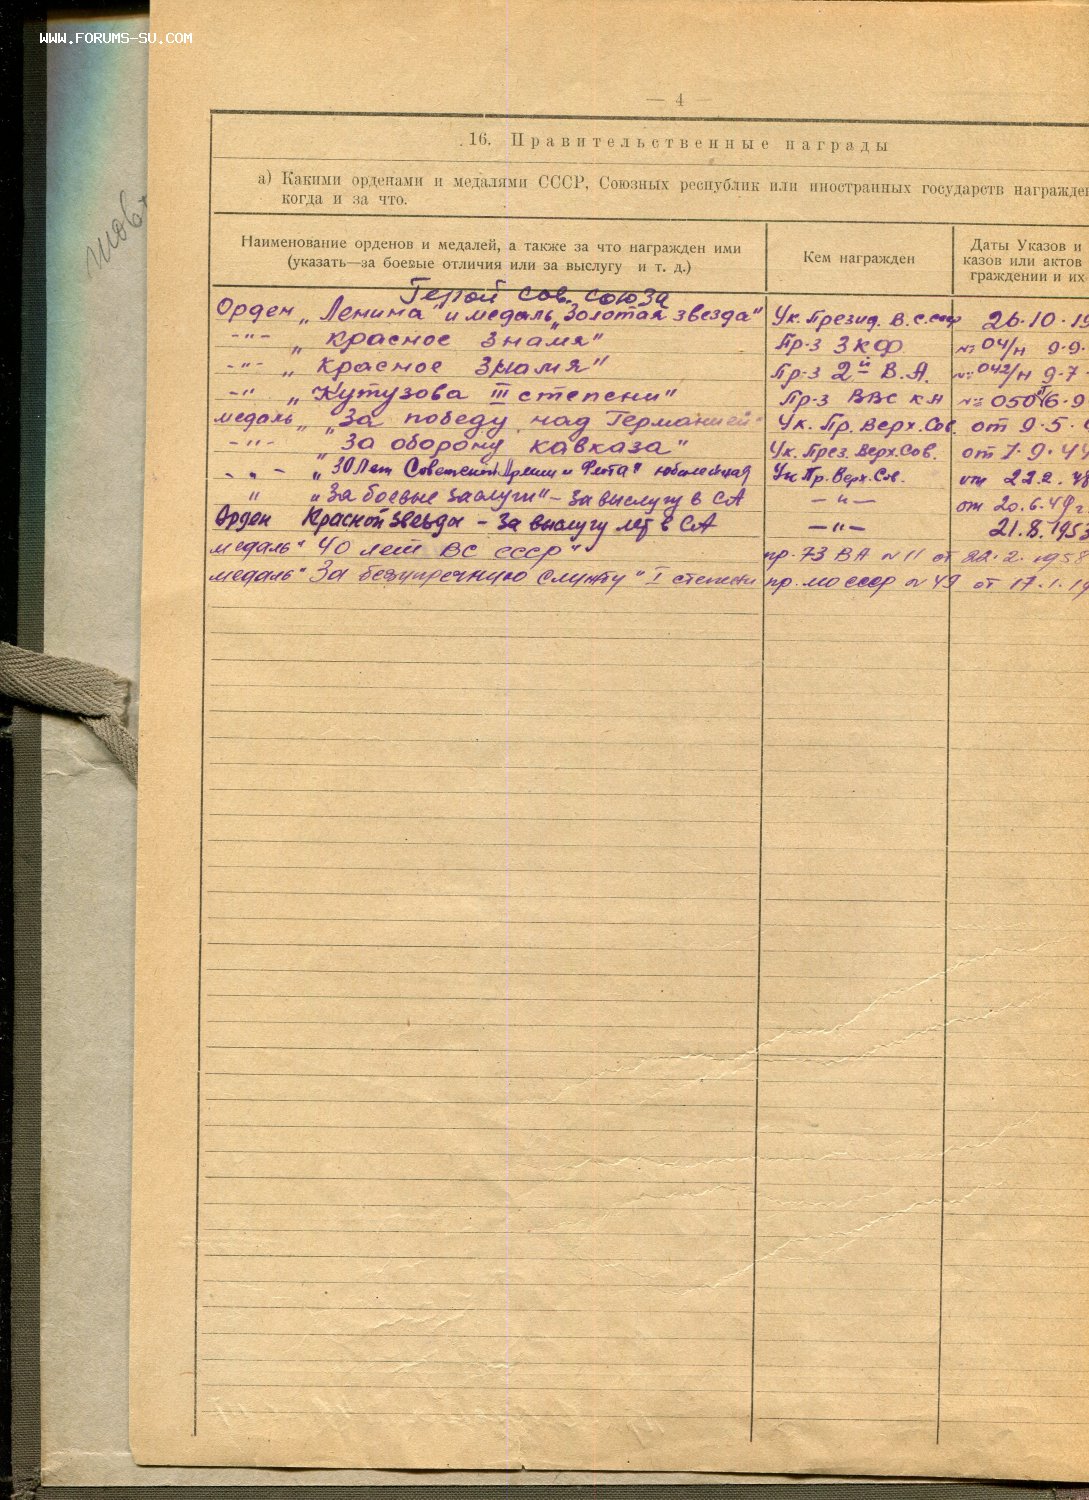 WWW.FORUMS-SU.COM
— 4 —
16. Правительственные награды
а) Какими орденами и медалями СССР, Союзных республик или иностранных государств награжден
когда и за что.
Наименование орденов и медалей, а также за что награжден ими
(указать—за боевые отличия или за выслугу и т. д.)
Кем награжден
Даты Указов и
казов или актов
граждении и их
Герой Сов. Союза
Орден „Ленина" и медаль „Золотая звезда" Ук. Презид. В.С. СССР 26.10.19
-"- „Красное Знамя" Пр-з ЗКФ № 04/н 9.9.
-"- „Красное Знамя" Пр-з 2й В.А. № 042/н 9.7.
-" „Кутузова III степени" Пр-з ВВС КА № 050 6.9
медаль „За победу над Германией" Ук. Пр. Верх. Сов. от 9.5.4
-"- „За оборону кавказа" Ук. През. Верх. Сов. от 7.9.44
- „ - „30 лет Советской Армии и Флота" юбилейная Ук Пр. Верх. Сов. от 22.2.48
" „За боевые заслуги" – За выслугу в СА — " — от 20.6.49 г.
Орден Красной Звезды – За выслугу лет в СА — " — 21.8.1953
медаль "40 лет ВС СССР" пр. 73 ВА № 11 от 22.2.1958
медаль "За безупречную службу" I степени пр. МО СССР № 49 от 17.1.19